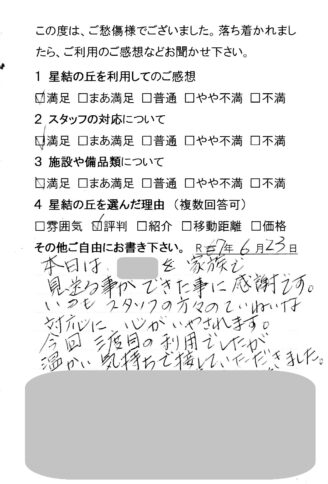 この度は、ご愁傷様でございました。落ち着かれまし
たら、ご利用のご感想などお聞かせ下さい。
1 星結の丘を利用してのご感想
☑満足 □まあ満足 □普通 □やや不満 □不満
2 スタッフの対応について
☑満足 □まあ満足 □普通 □やや不満 □不満
3 施設や備品類について
☑満足 □まあ満足 □普通 □やや不満 □不満
4 星結の丘を選んだ理由（複数回答可）
□雰囲気 ☑評判 □紹介 □移動距離 □価格
その他ご自由にお書き下さい。 R 7年 6月 23日
本日は、 を 家族で
見送る事ができた事に感謝です。
いつも スタッフの方々のていねいな
対応に、心がいやされます。
今回 三度目の利用でしたが
温かい気持ちで接していただきました。